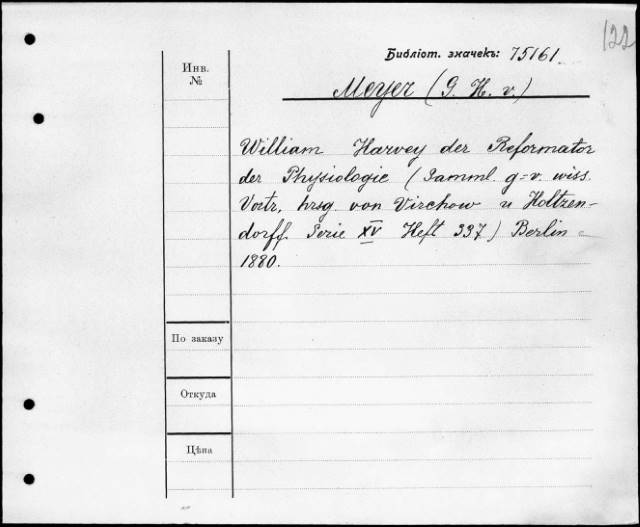 122
Библіот. значекъ: 75161.
Инв.
№
Meyer (G. H. v.)
William Harvey der Reformator
der Physiologie (Samml g=v. wiss.
Vortr, hrsg. von Virchow u Holtzen-
dorff. Serie XV Heft 337) Berlin =
1880.
По заказу
Откуда
Цѣна